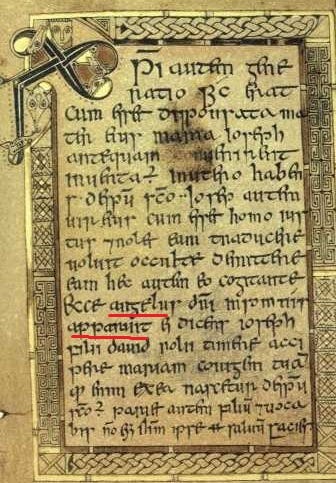 XPI autem gene
ratio sic erat
cum esset disponsata ma
ter eius maria ioseph
antequam convenirent
inventa ÷ in utero habens
ioseph autem
vir eius cum esset homo ius
tus 7 nolet eam traducere
voluit occulte dimittere
eam hec autem eo cogitante
ecce angelus dni in somnis
apparuit ei dicens ioseph
fili david noli timere acci
pere mariam coniugem tuā
enim ex ea nascetur
pariet autem filium 7 voca
bis ipse salvum faciet